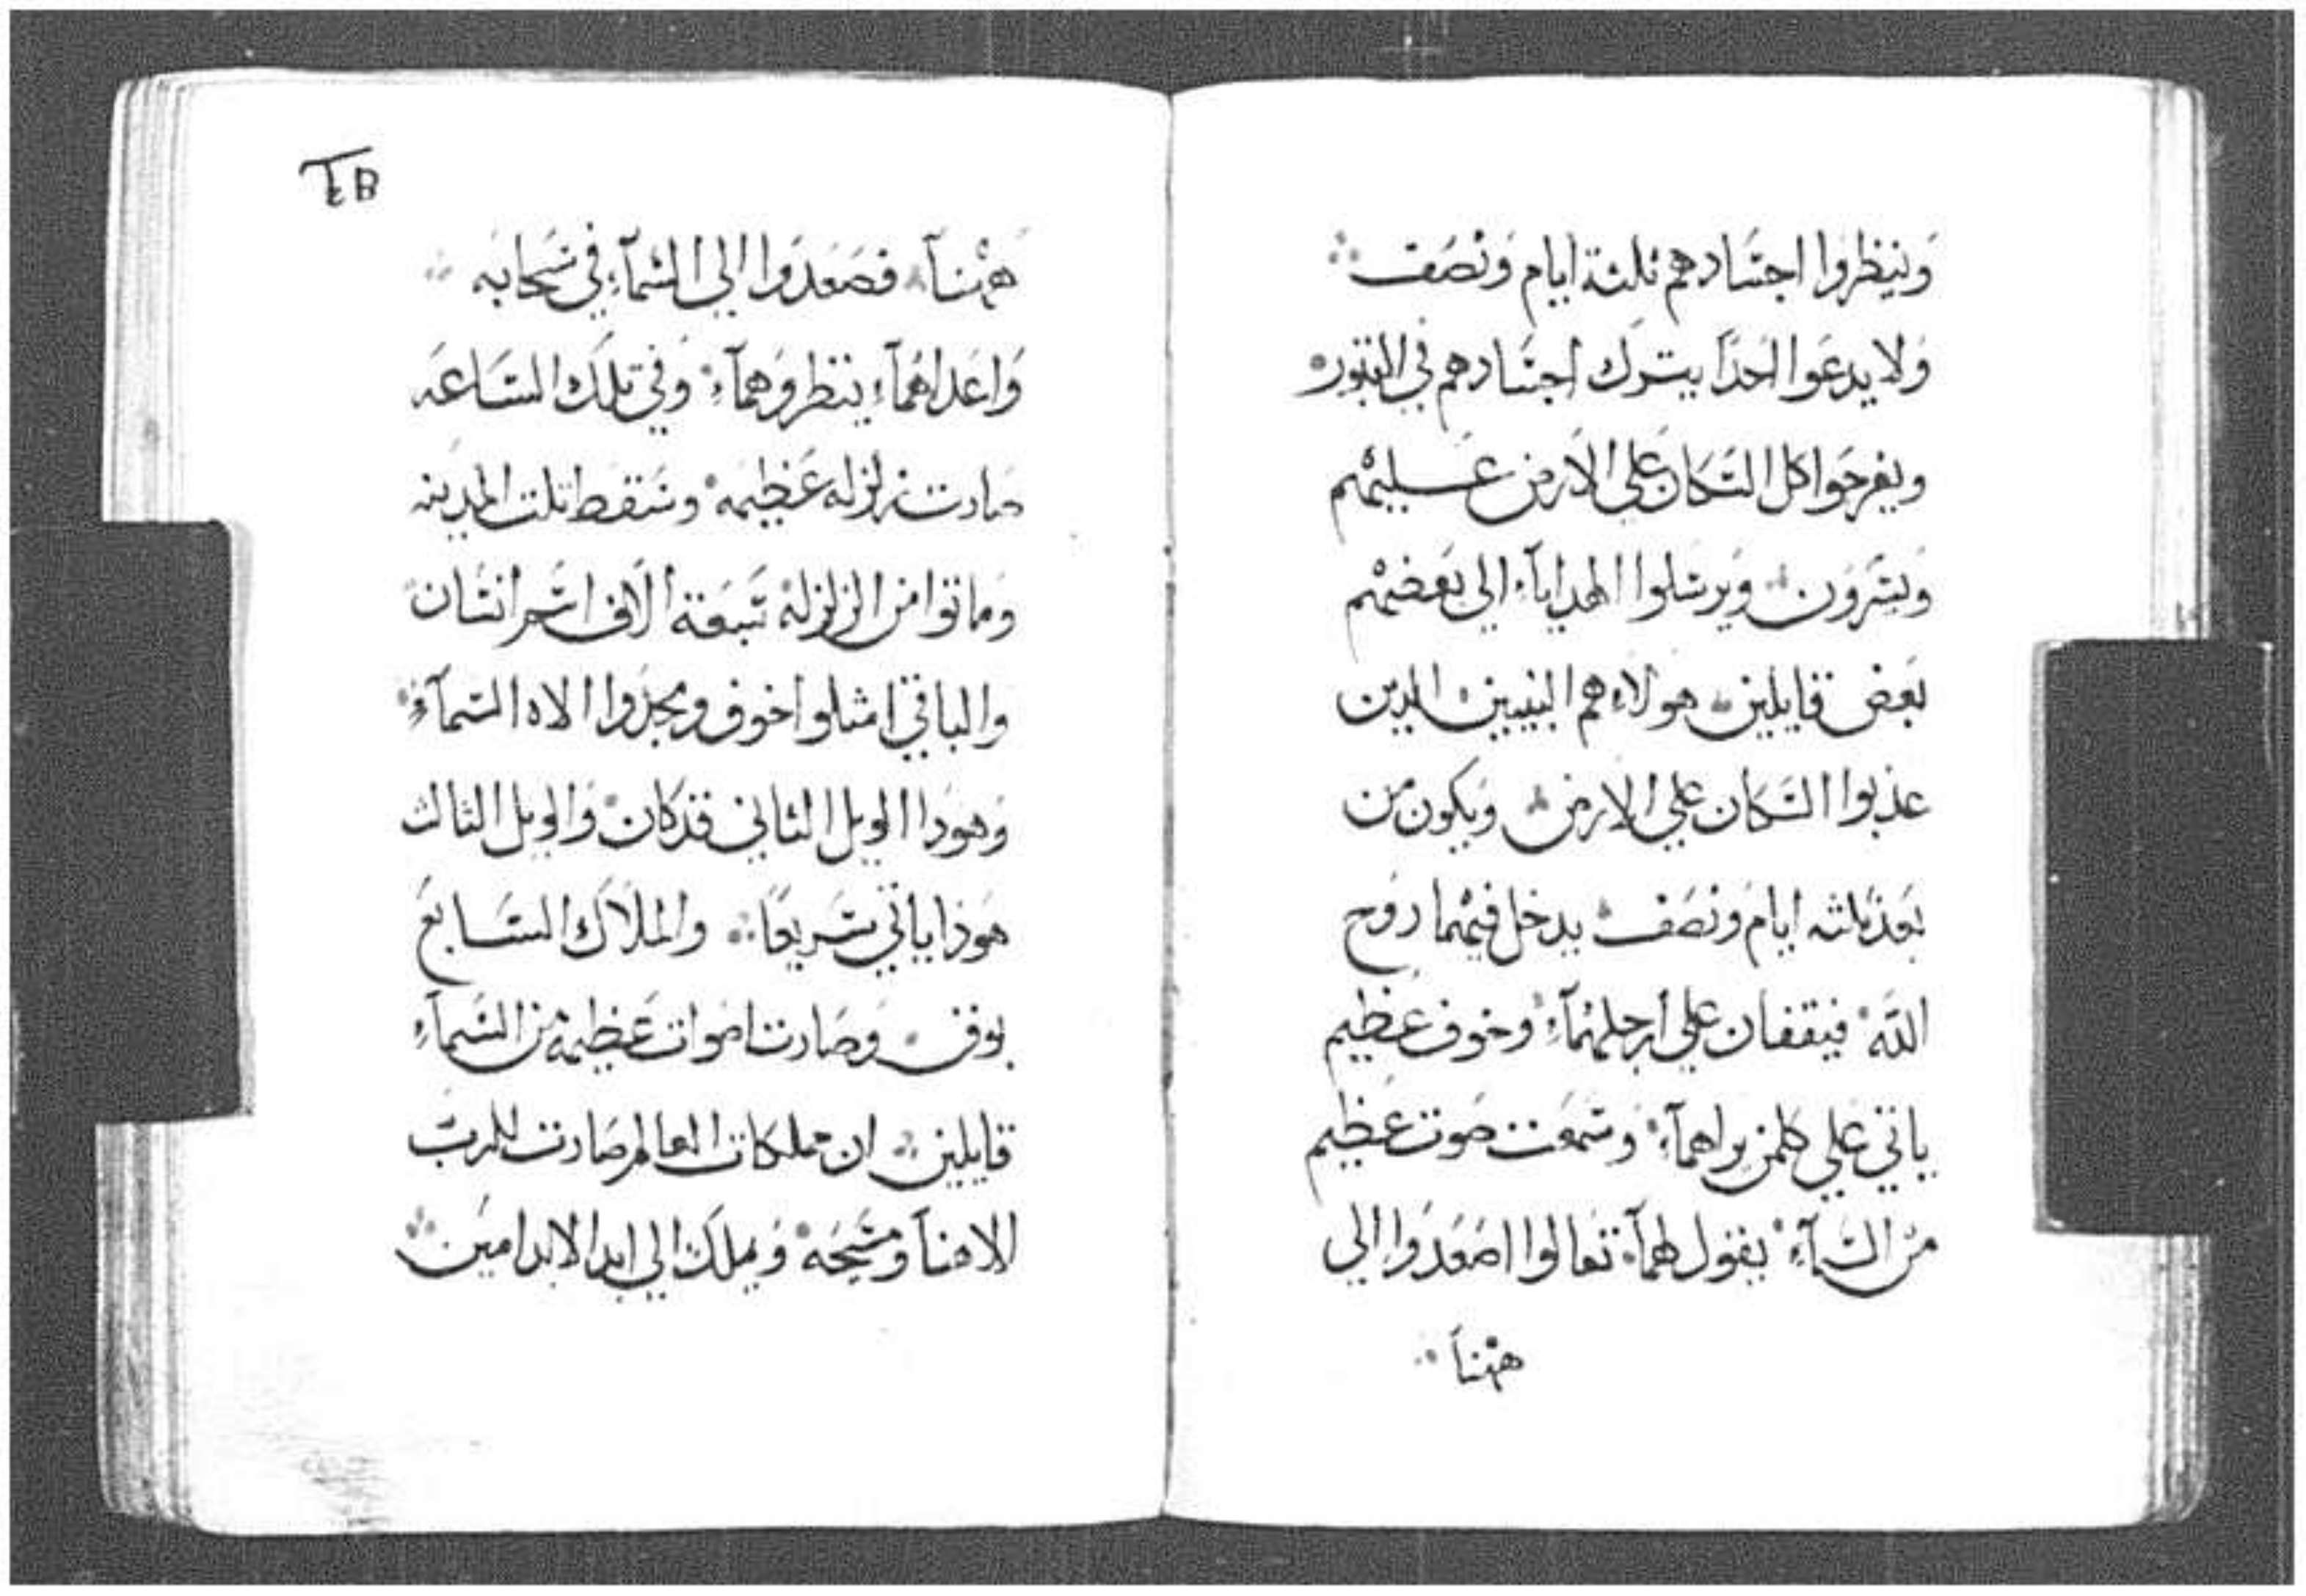 وينظروا اجسادهم ثلثة ايام ونصف
ولا يدعوا احدا يترك اجسادهم في القبور
ويفرحوا كل السكان علي الارض عليهم
ويسرون ويرسلوا الهدايآء الي بعضهم
بعض قايلين هولاء هم النبيين الدين
عذبوا السكان علي الارض ويكون من
بعد ثلثه ايام ونصف يدخل فيهما روح
الله فيقفان علي ارجلهمآء وخوف عظيم
ياتي علي كلمن يراهمآء وسمعت صوت عظيم
من السمآء يقول لهمآ تعالوا اصعدوا الي
ههنآ
ههنآ فصعدوا الي السمآء في سحابه
واعداهمآء ينظروهمآء وفي تلك الساعه
صارت زلزله عظيمه وسقط تلت المدينه
وماتوا من الزلزله سبعة الاف اسم انسان
والباقي امتلوا خوف ومجدوا الاه السمآء
وهودا الويل الثاني قد كان والويل الثالث
هوذا ياتي سريعا والملاك السابع
بوق وصارت اصوات عظيمه من السمآء
قايلين ان مملكات العالم صارت للرب
الاهنآ ومسيحه ويملك الي ابد الابد امين